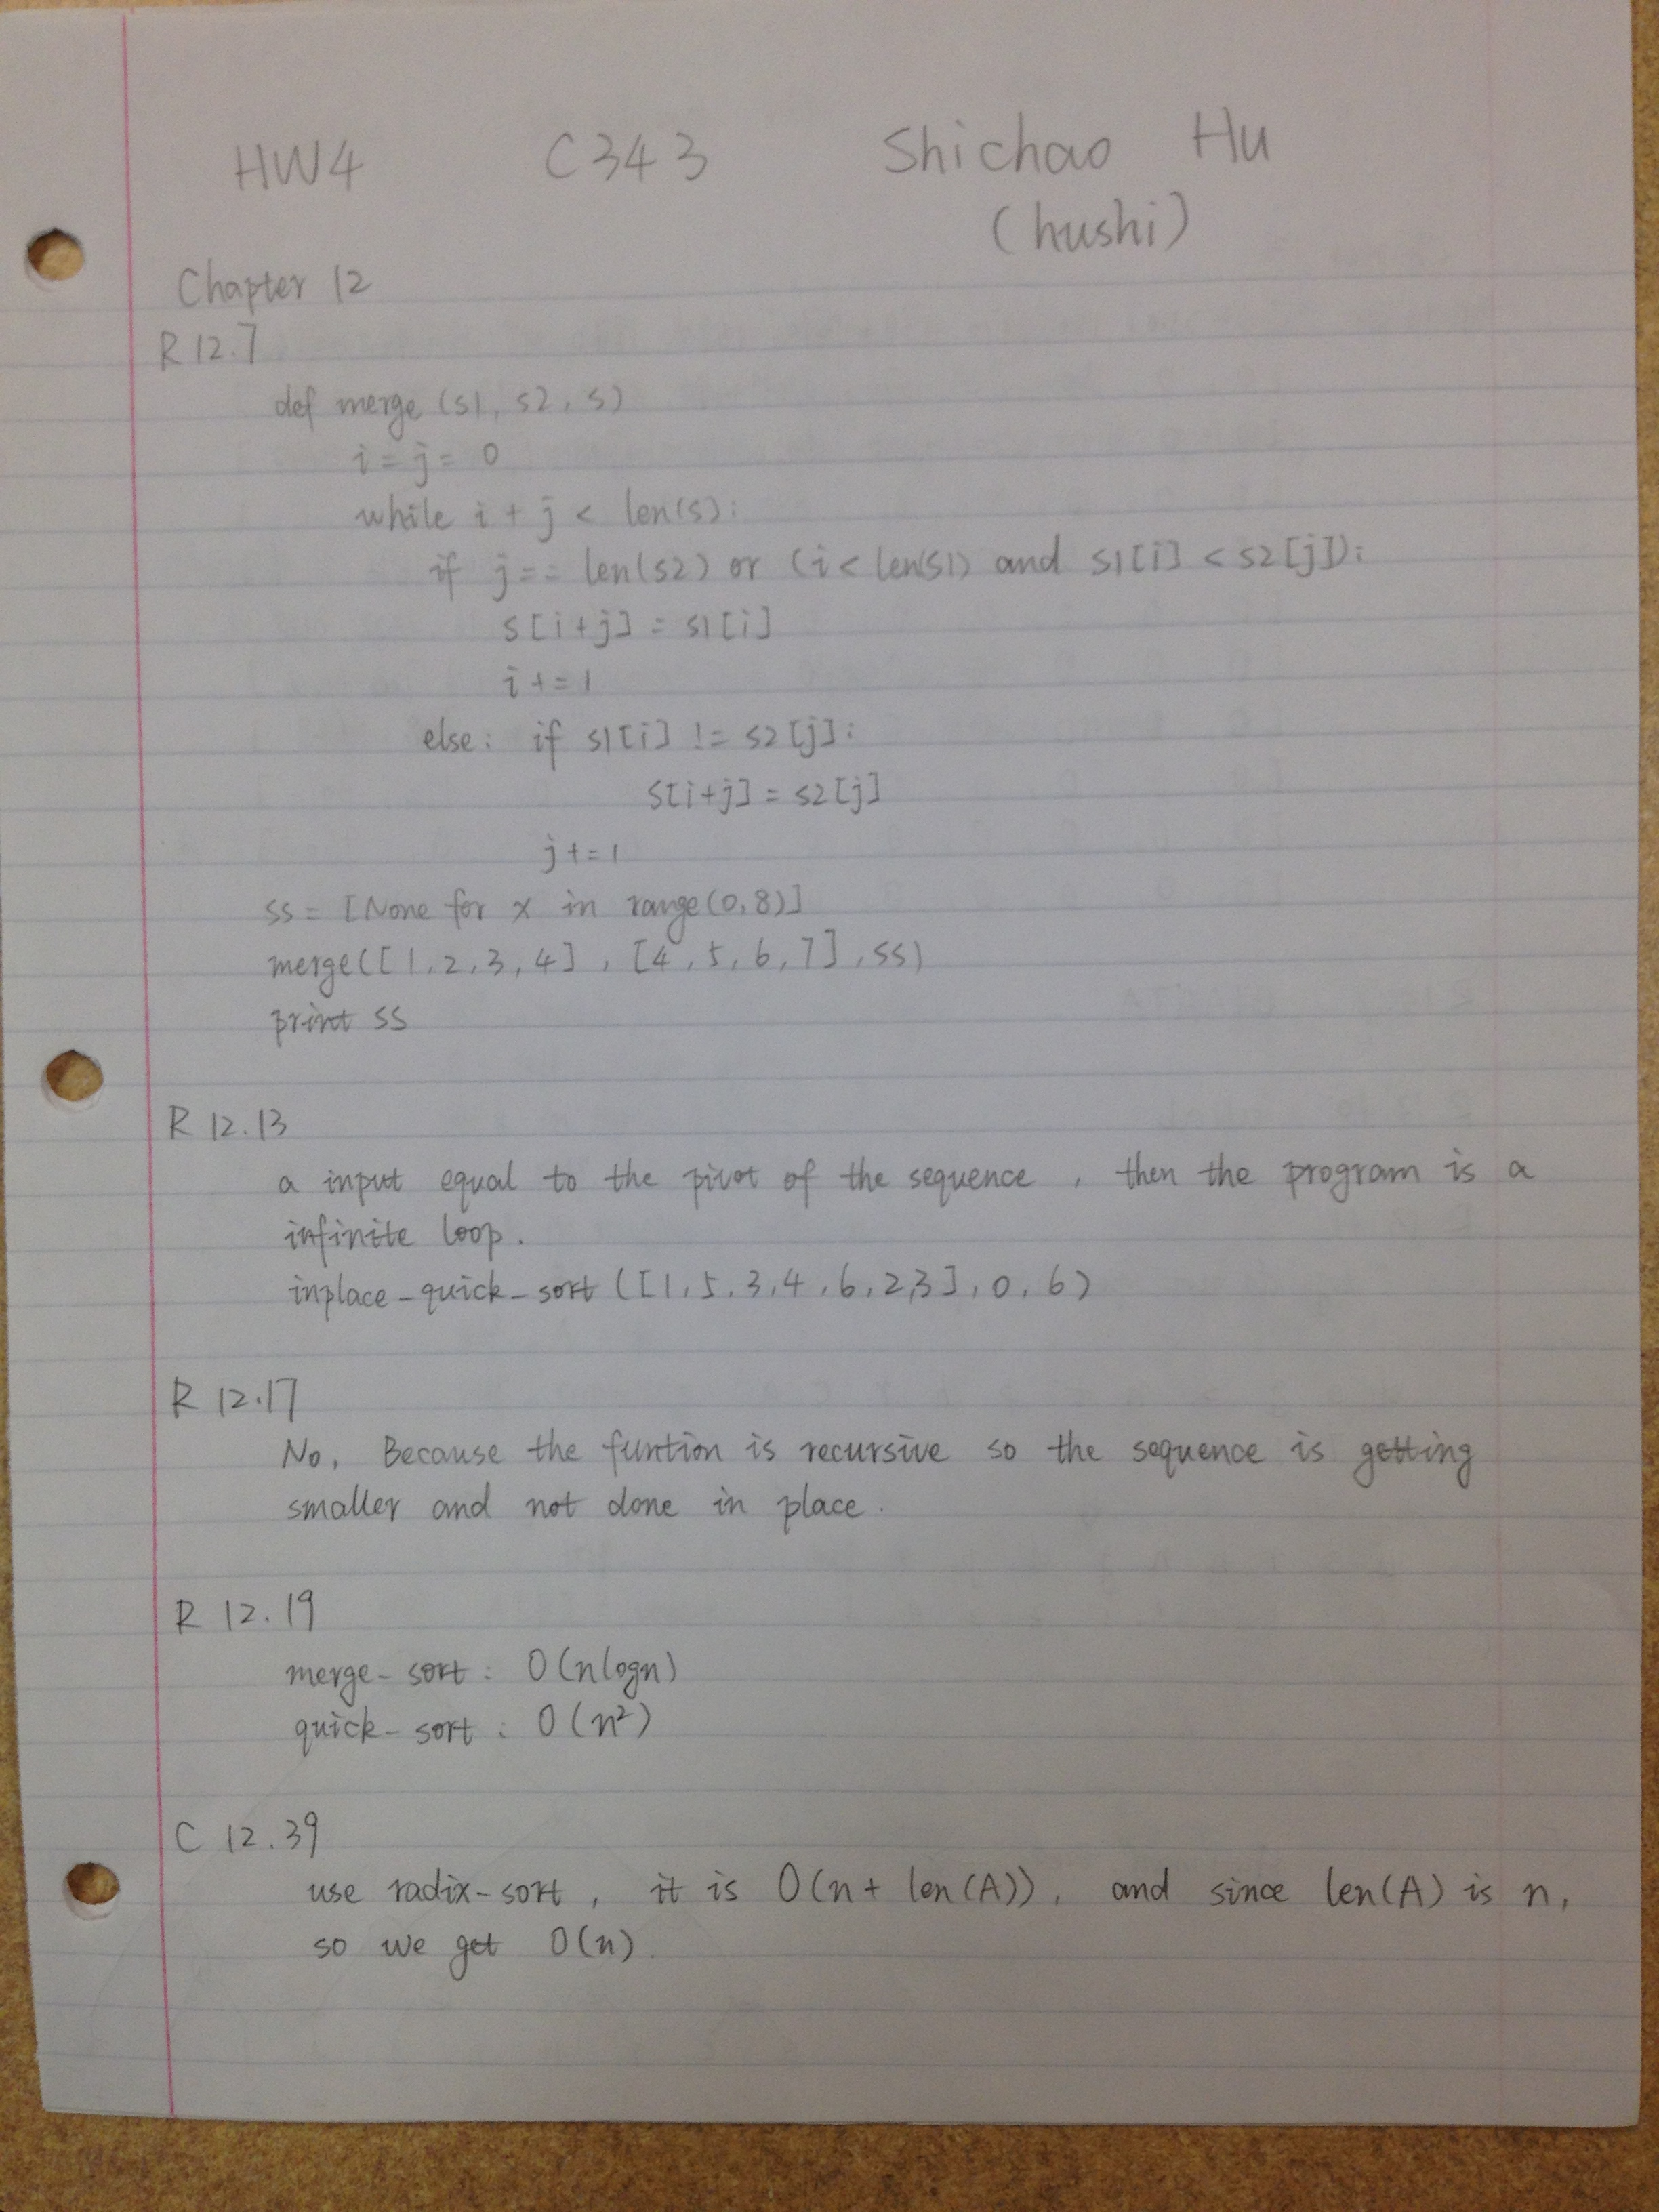 HW4 C343 Shichao Hu
(hushi)
Chapter 12
R 12.7
def merge (s1, s2, s)
i = j = 0
while i + j < len(s):
if j == len(s2) or (i < len(s1) and s1[i] < s2[j]):
s[i+j] = s1[i]
i += 1
else: if s1[i] != s2[j]:
s[i+j] = s2[j]
j += 1
ss = [None for x in range(0,8)]
merge([1,2,3,4], [4,5,6,7], ss)
print ss
R 12.13
a input equal to the pivot of the sequence, then the program is a
infinite loop.
inplace-quick-sort ([1,5,3,4,6,2,3], 0, 6)
R 12.17
No, Because the funtion is recursive so the sequence is getting
smaller and not done in place.
R 12.19
merge-sort: O(nlogn)
quick-sort: O(n²)
C 12.39
use radix-sort, it is O(n + len(A)), and since len(A) is n,
so we get O(n).